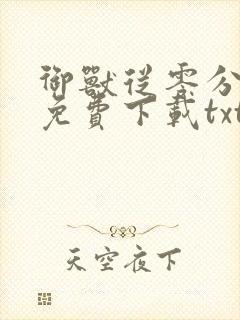 御獸從零分
免費下載txt
天空夜下